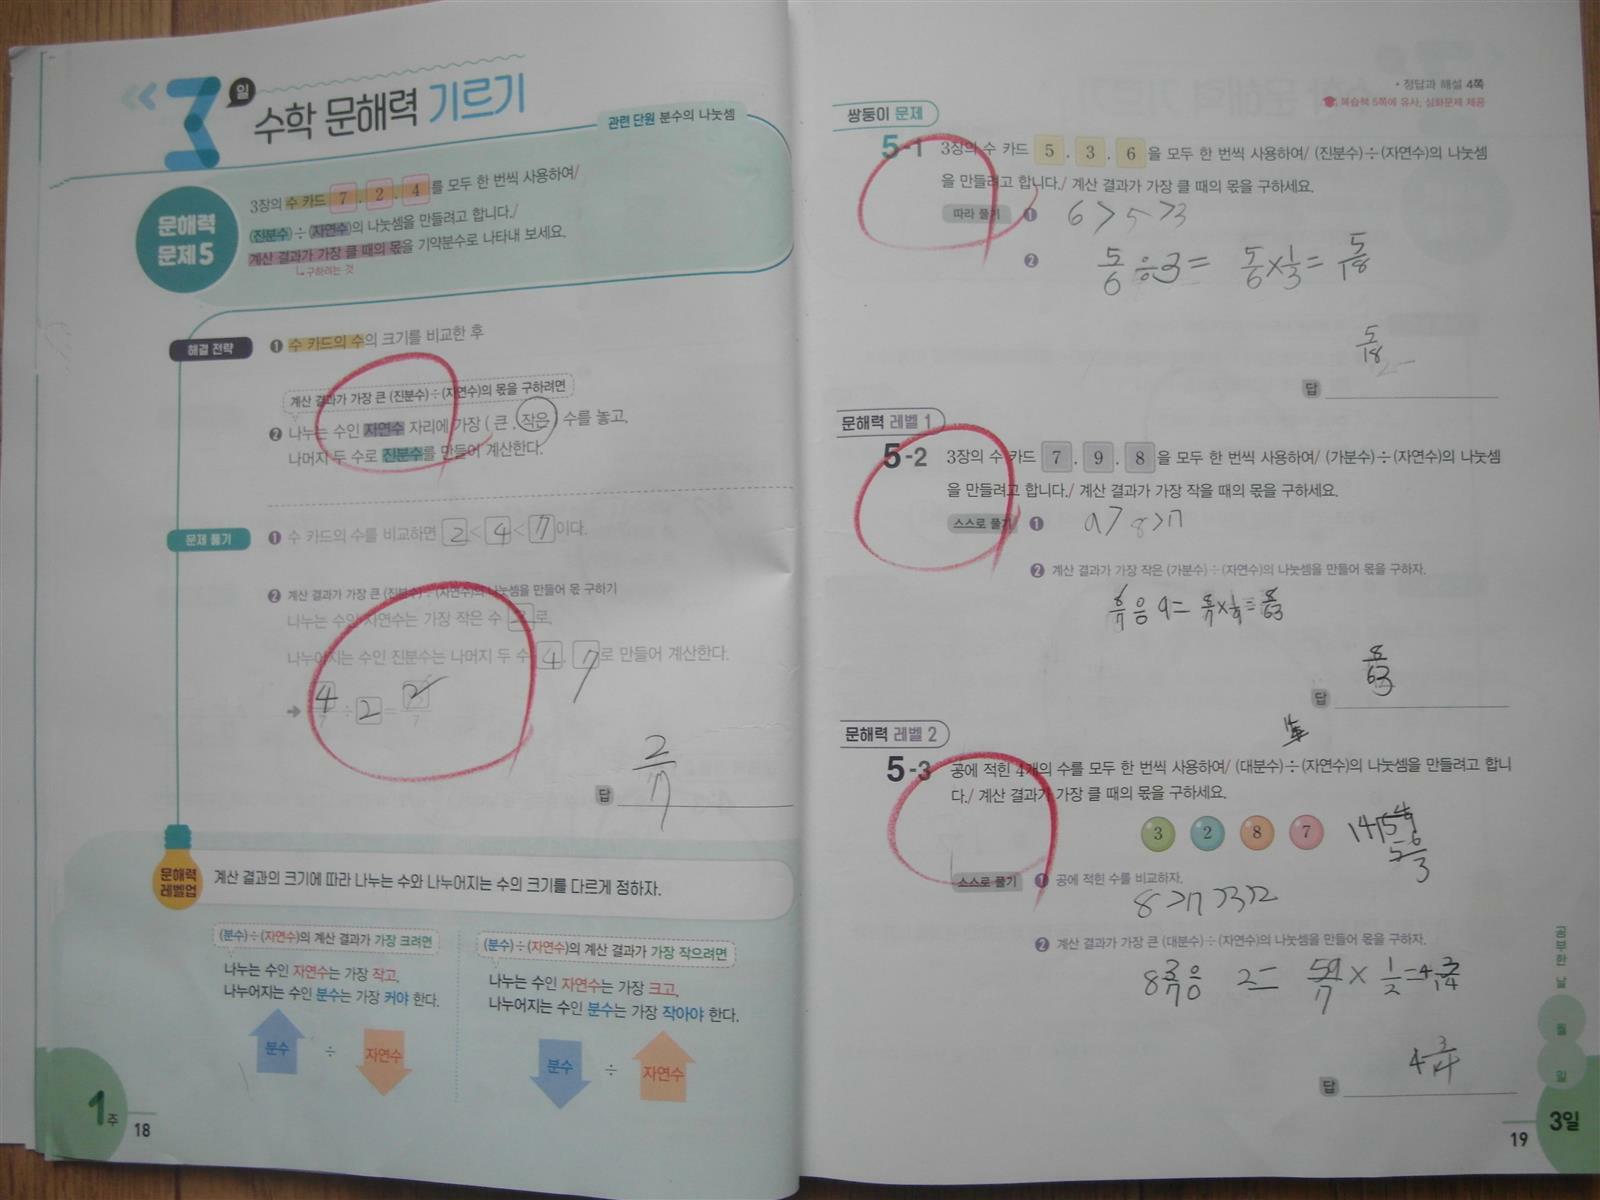 3일 수학 문해력 기르기
관련 단원 분수의 나눗셈
문해력 문제 5
3장의 수 카드 7, 2, 4를 모두 한 번씩 사용하여/
(진분수)÷(자연수)의 나눗셈을 만들려고 합니다./
계산 결과가 가장 클 때의 몫을 기약분수로 나타내 보세요.
↳구하려는 것
해결 전략
❶ 수 카드의 수의 크기를 비교한 후
계산 결과가 가장 큰 (진분수)÷(자연수)의 몫을 구하려면
❷ 나누는 수인 자연수 자리에 가장 ( 큰 , 작은 ) 수를 놓고,
나머지 두 수로 진분수를 만들어 계산한다.
문제 풀기
❶ 수 카드의 수를 비교하면 2<4<7이다.
❷ 계산 결과가 가장 큰 (진분수)÷(자연수)의 나눗셈을 만들어 몫 구하기
나누는 수인 자연수는 가장 작은 수 2로,
나누어지는 수인 진분수는 나머지 두 수 4, 7로 만들어 계산한다.
➔ 4/7÷2=2/7
답 2/7
문해력 레벨업
계산 결과의 크기에 따라 나누는 수와 나누어지는 수의 크기를 다르게 정하자.
(분수)÷(자연수)의 계산 결과가 가장 크려면
나누는 수인 자연수는 가장 작고,
나누어지는 수인 분수는 가장 커야 한다.
분수 ÷ 자연수
(분수)÷(자연수)의 계산 결과가 가장 작으려면
나누는 수인 자연수는 가장 크고,
나누어지는 수인 분수는 가장 작아야 한다.
분수 ÷ 자연수
1주
18
• 정답과 해설 4쪽
복습책 5쪽에 유사, 심화문제 제공
쌍둥이 문제
5-1 3장의 수 카드 5, 3, 6을 모두 한 번씩 사용하여/ (진분수)÷(자연수)의 나눗셈
을 만들려고 합니다./ 계산 결과가 가장 클 때의 몫을 구하세요.
따라 풀기 ❶ 6>5>3
❷ 5/6÷3= 5/6×1/3=5/18
5/18
답
문해력 레벨 1
5-2 3장의 수 카드 7, 9, 8을 모두 한 번씩 사용하여/ (가분수)÷(자연수)의 나눗셈
을 만들려고 합니다./ 계산 결과가 가장 작을 때의 몫을 구하세요.
스스로 풀기 ❶ 9>8>7
❷ 계산 결과가 가장 작은 (가분수)÷(자연수)의 나눗셈을 만들어 몫을 구하자.
8/7÷9=8/7×1/9=8/63
8/63
답
문해력 레벨 2
5-3 공에 적힌 4개의 수를 모두 한 번씩 사용하여/ (대분수)÷(자연수)의 나눗셈을 만들려고 합니
다./ 계산 결과가 가장 클 때의 몫을 구하세요.
3 2 8 7
스스로 풀기 ❶ 공에 적힌 수를 비교하자.
8>7>3>2
❷ 계산 결과가 가장 큰 (대분수)÷(자연수)의 나눗셈을 만들어 몫을 구하자.
8 3/7÷2= 59/7×1/2=4 3/14
4 3/14
답
공부한 날 월 일
19
3일